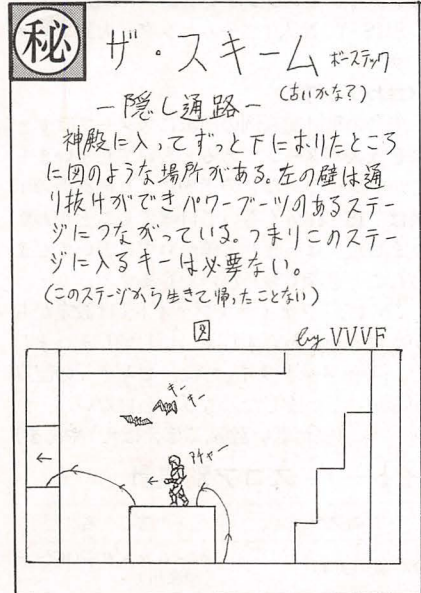 秘
ザ・スキーム ボーステック
(古いかな?)
―隠し通路―
神殿に入ってずっと下におりたところ
に図のような場所がある。左の壁は通
り抜けができパワーブーツのあるステー
ジにつながっている。つまりこのステー
ジに入るキーは必要ない。
(このステージから生きて帰ったことない)
図
by VVVF
キー
キー
アチャー